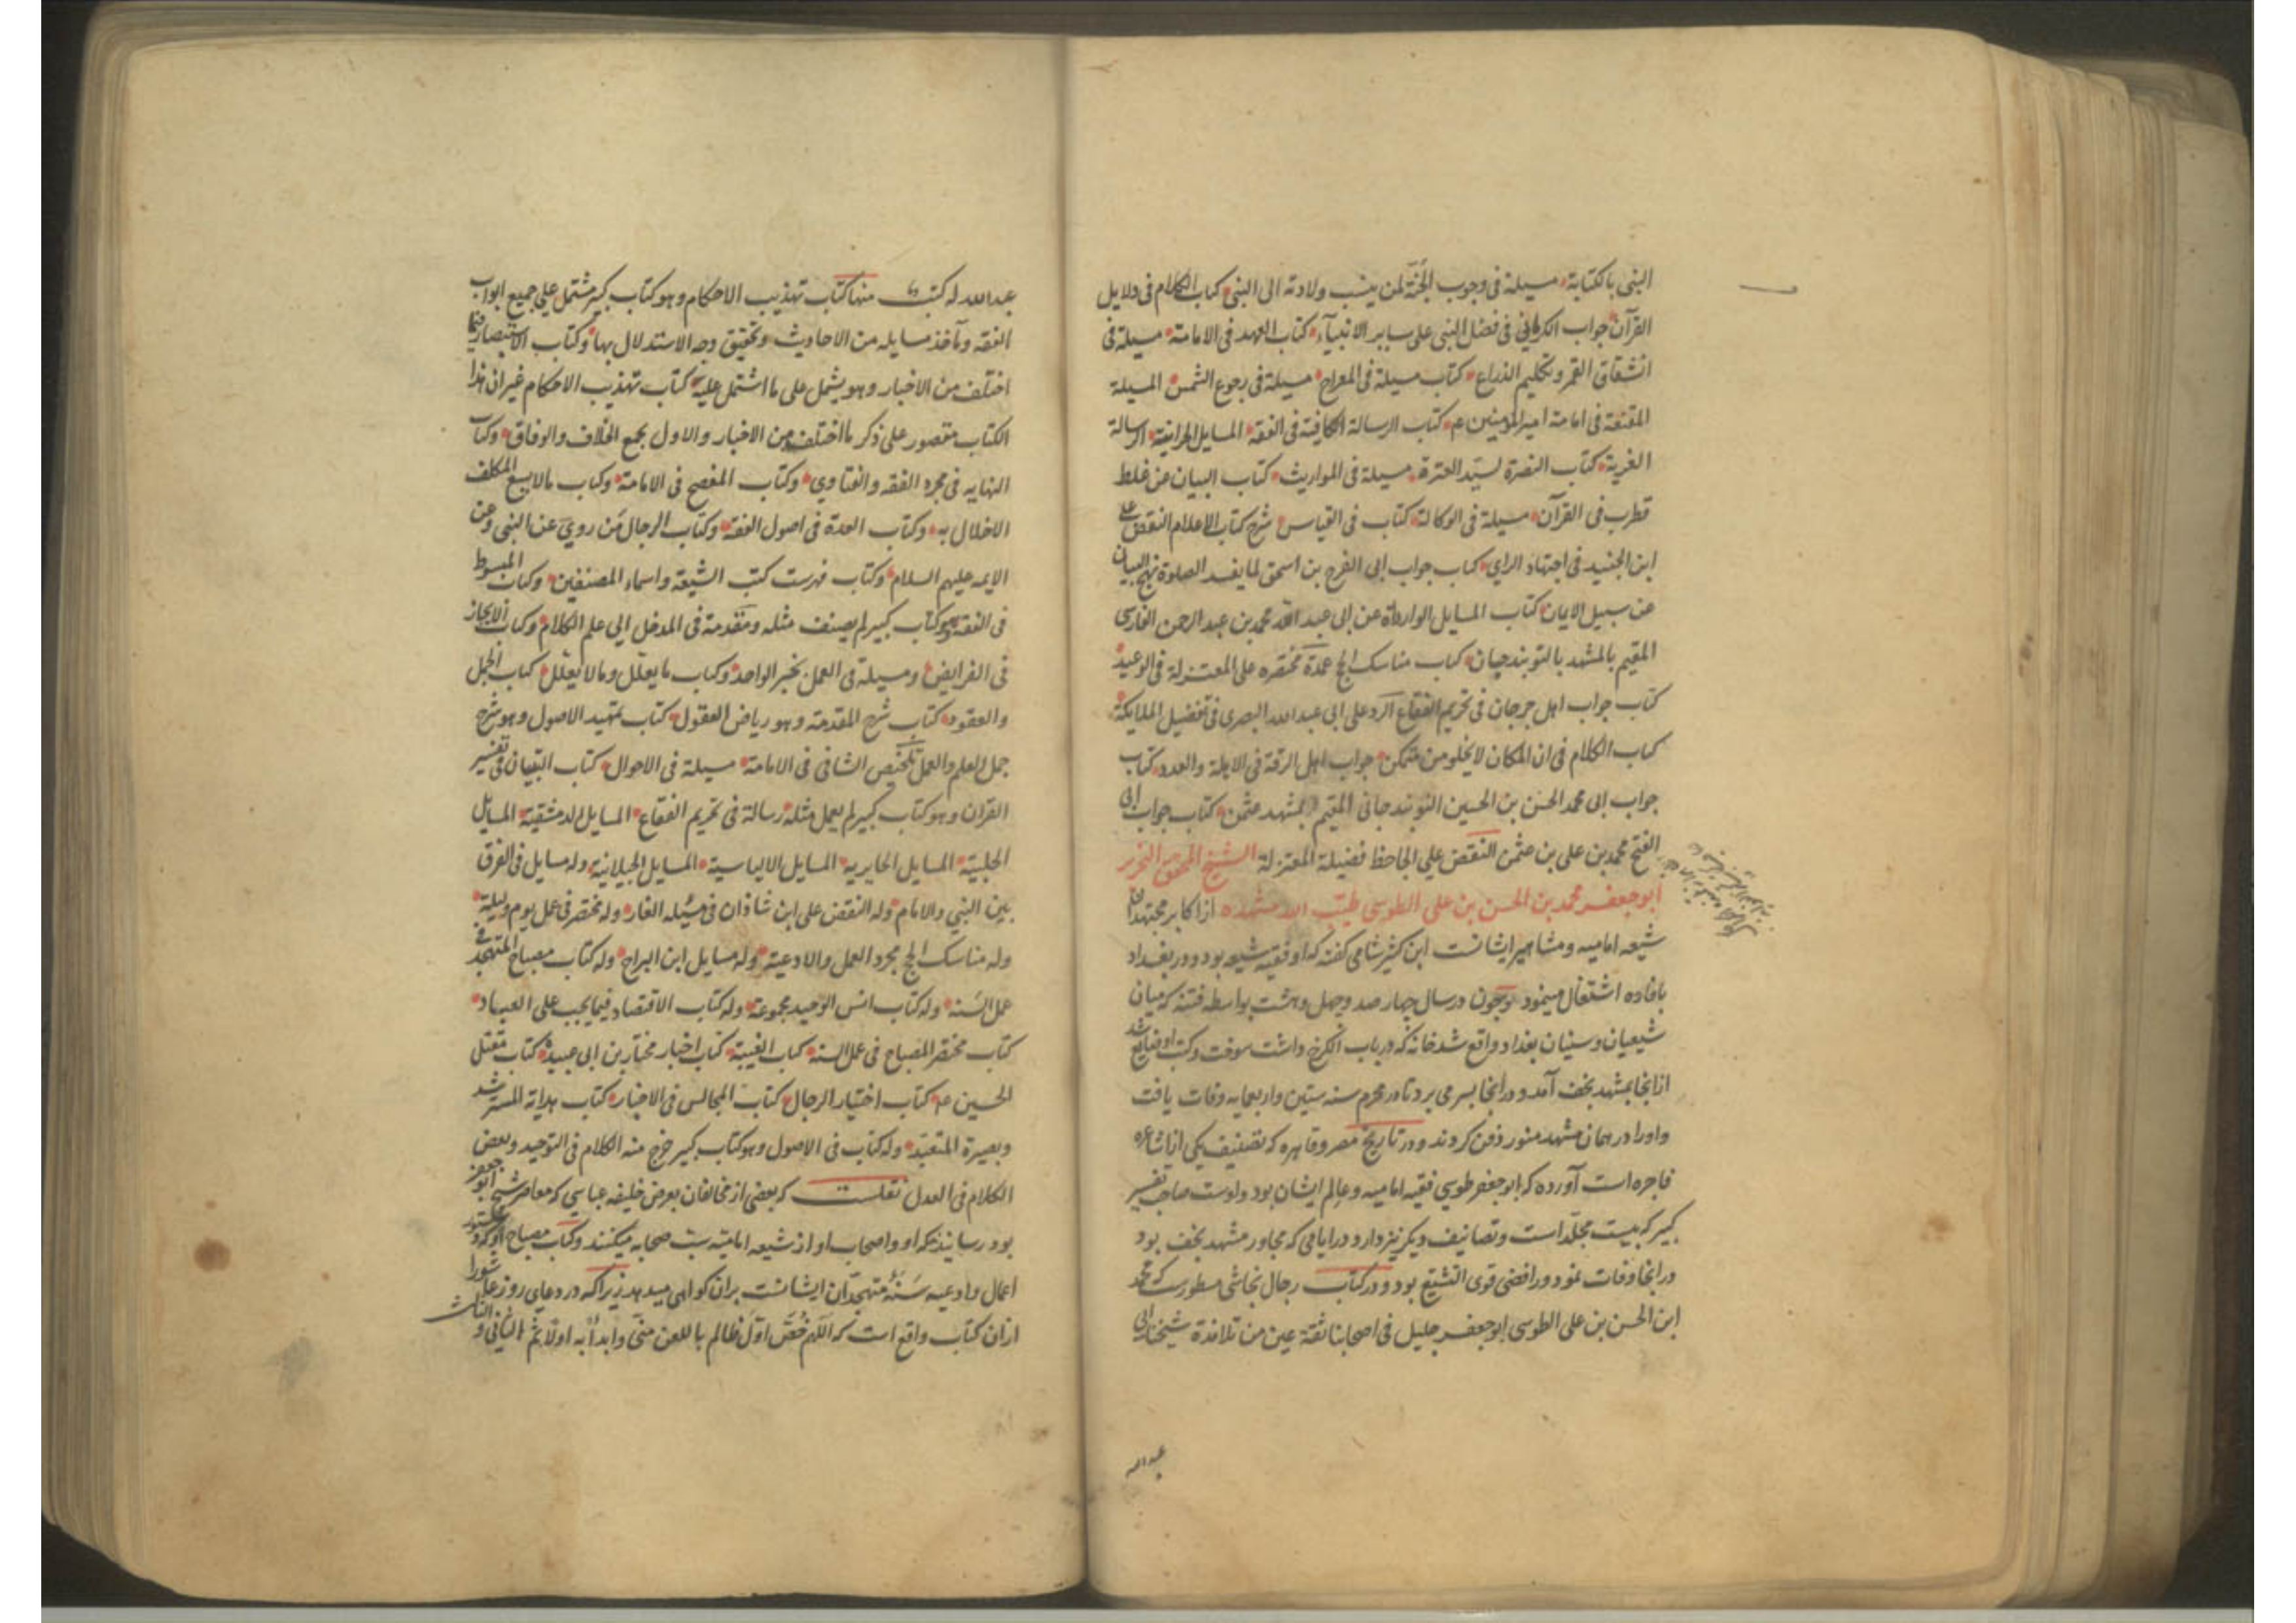 النبی بالکتابة مسیلة فی وجوب الجنّة لمن ینسب ولادته الی النبی کتاب الکلام فی دلایل
القرآن جواب الکرمانی فی فضل النبی علی سایر الانبیآء کتاب العهد فی الامامة مسیلة فی
انشقاق القمر وتکلیم الذراع کتاب مسیلة فی المعراج مسیلة فی رجوع الشمس المسیلة
المقنعة فی امامة امیرالمؤمنین ع م کتاب الرسالة الکافیة فی الفقه المسایل الحرانیة الرسالة
الغریة کتاب النصرة لسیّد العترة مسیلة فی المواریث کتاب البیان عن غلط
قطرب فی القرآن مسیلة فی الوکالة کتاب فی القیاس شرح کتاب الاعلام النقض علی
ابن الجنید فی اجتهاد الرای کتاب جواب ابی الفرج بن اسحق لما یفسد الصلوة نهج البیان
عن سبیل الایمان کتاب المسایل الواردة عن ابی عبد الله محمد بن عبد الرحمن الفارسی
المقیم بالمشهد بالنوبندجان کتاب مناسک الحج عمدة مختصره علی المعتزلة فی الوعید
کتاب جواب اهل جرجان فی تحریم الفقاع الرد علی ابی عبدالله البصری فی تفضیل الملایکة
کتاب الکلام فی ان المکان لا یخلو من متمکن جواب اهل الرقة فی الاهلة والعدد کتاب
جواب ابی محمد الحسن بن الحسین النوبندجانی المقیم بمشهد عثمن کتاب جواب ابی
الفتح محمد بن علی بن عثمن النقض علی الجاحظ فضیلة المعتزلة الشیخ المحقق النحریر
ابوجعفر محمد بن الحسن بن علی الطوسی طیّب الله مشهده از اکابر مجتهدان
شیعه امامیه ومشاهیر ایشانست ابن کثیر شامی کفته که او فقیه شیعه بود ودر بغداد
بافاده اشتغال مینمود وچون در سال چهار صد وچهل وهشت بواسطه فتنه که میان
شیعیان وسنیان بغداد واقع شد خانه که در باب الکرخ داشت سوخت وکتب او ضایع شد
از انجا بمشهد نجف آمد ودر آنجا بسر می برد تا در محرم سنه ستین واربعمایه وفات یافت
واورا در همان مشهد منور دفن کردند ودر تاریخ مصر وقاهره که تصنیف یکی از اشاعره
فاجره است آورده که ابوجعفر طوسی فقیه امامیه وعالم ایشان بود واوست صاحب تفسیر
کبیر که بیست مجلّد است وتصانیف دیکر نیز دارد ودر ایامی که مجاور مشهد نجف بود
در انجا وفات نمود ورافضی قوی التشیّع بود ودر کتاب رجال نجاشی مسطور است که محمد
ابن الحسن بن علی الطوسی ابوجعفر جلیل فی اصحابنا ثقة عین من تلامذة شیخنا ابی
عبدالله
عبدالله له کتب منها کتاب تهذیب الاحکام وهو کتاب کبیر مشتمل علی جمیع ابواب
الفقه ومآخذ مسایله من الاحادیث وتحقیق وجه الاستدلال بها وکتاب الاستبصار فیما
اختلف من الاخبار وهو یشمل علی ما اشتمل علیه کتاب تهذیب الاحکام غیر ان هذا
الکتاب مقصور علی ذکر ما اختلف من الاخبار والاول یجمع الخلاف والوفاق وکتاب
النهایه فی مجرد الفقه والفتاوی وکتاب المفصح فی الامامة وکتاب مالا یسع المکلف
الاخلال به وکتاب العدة فی اصول الفقه وکتاب الرجال مَن روی عن النبی وعن
الایمه علیهم السلام وکتاب فهرست کتب الشیعة واسماء المصنفین وکتاب المبسوط
فی الفقه وهو کتاب کبیر لم یصنف مثله ومقدمة فی المدخل الی علم الکلام وکتاب الایجاز
فی الفرایض ومسیلة فی العمل بخبر الواحد وکتاب ما یعلّل وما لا یعلّل کتاب الجمل
والعقود کتاب شرح المقدمة وهو ریاض العقول کتاب تمهید الاصول وهو شرح
جمل العلم والعمل تلخیص الشافی فی الامامة مسیلة فی الاحوال کتاب التبیان فی تفسیر
القران وهو کتاب کبیر لم یعمل مثله رسالة فی تحریم الفقاع المسایل الدمشقیة المسایل
الحلبیّة المسایل الحایریه المسایل الالیاسیة المسایل الجیلانیة وله مسایل فی الفرق
بین النبی والامام وله النقض علی ابن شاذان فی مسئله الغار وله مختصر فی عمل یوم ولیلة
وله مناسک الحج مجرد العمل والادعیة وله مسایل ابن البراج وله کتاب مصباح المتهجد فی
عمل السَنة وله کتاب انس الوحید مجموعة وله کتاب الاقتصاد فیما یجب علی العباد
کتاب مختصر المصباح فی عمل السنه کتاب الغیبة کتاب اخبار مختار بن ابی عبیدة کتاب مقتل
الحسین ع م کتاب اختیار الرجال کتاب المجالس فی الاخبار کتاب هدایة المسترشد
وبصیرة المتعبّد وله کتاب فی الاصول وهو کتاب کبیر خرج منه الکلام فی التوحید وبعض
الکلام فی العدل نقلست که بعضی از مخالفان بعرض خلیفه عباسی که معاصر شیخ ابوجعفر
بود رسانیدند که او واصحاب او از شیعه امامیّه سبّ صحابه میکنند وکتاب مصباح او که دستور
اعمال وادعیه سَنَهٔ متهجّدان ایشانست بران کواهی میدهد زیرا که در دعای روز عاشورا
ازان کتاب واقع است که اللّهم خُصَّ اوّلَ ظالم باللعن منّی وابدأ به اولًا ثمّ الثانی و الثالث